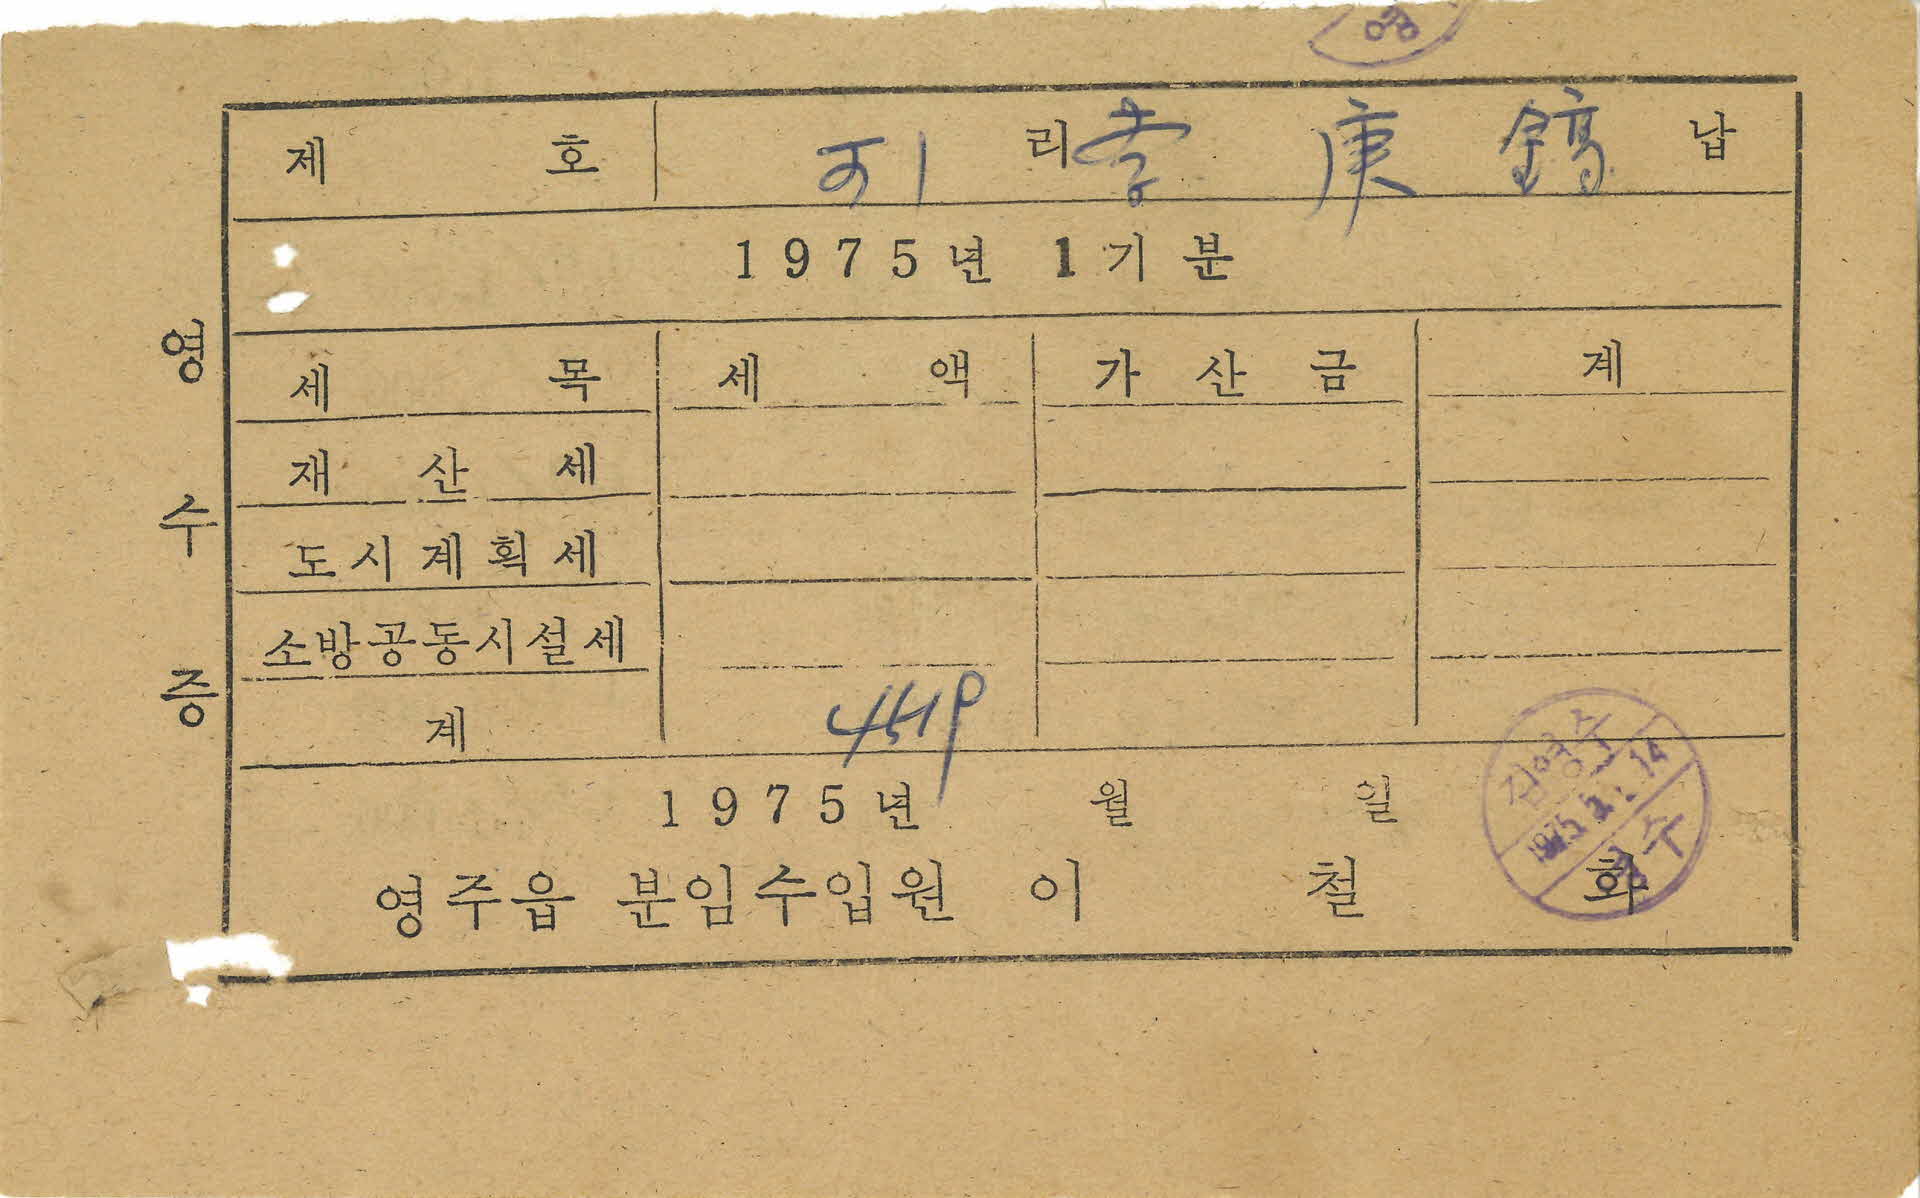 영수증
제 호 리 李庚鎬 납
1975년 1기분
세목 세액 가산금 계
재산세
도시계획세
소방공동시설세
계
1975년 월 일
영주읍 분임수입원 이철화
김영수
1975.2.14
영수